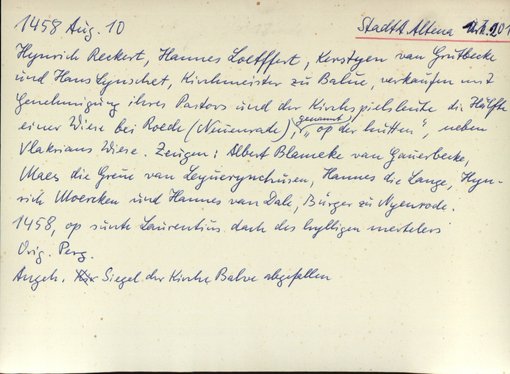 1458 Aug. 10 Stadt Altena Urk. 201
Hynrich Reckert, Hannes Loeffert, Kerstyen van Grutbecke
und Hans Lynschet, Kirchmeister zu Balve, verkaufen mit
Genehmigung ihres Pastors und der Kirchspielsleute die Hälfte
einer Wiese bei Roede (Neuenrade), genannt „op der hutten", neben
Vlakrians Wiese. Zeugen: Albert Blameke van Gauerbecke,
Maes die Greve van, Hannes die Lange, Hyn-
rich Moercken und Hannes van Dale, Bürger zu Nyenrode.
1458, op sunte Laurentius dach des hylligen mertelers
Orig. Perg.
Angeh. Siegel der Kirche Balve abgefallen